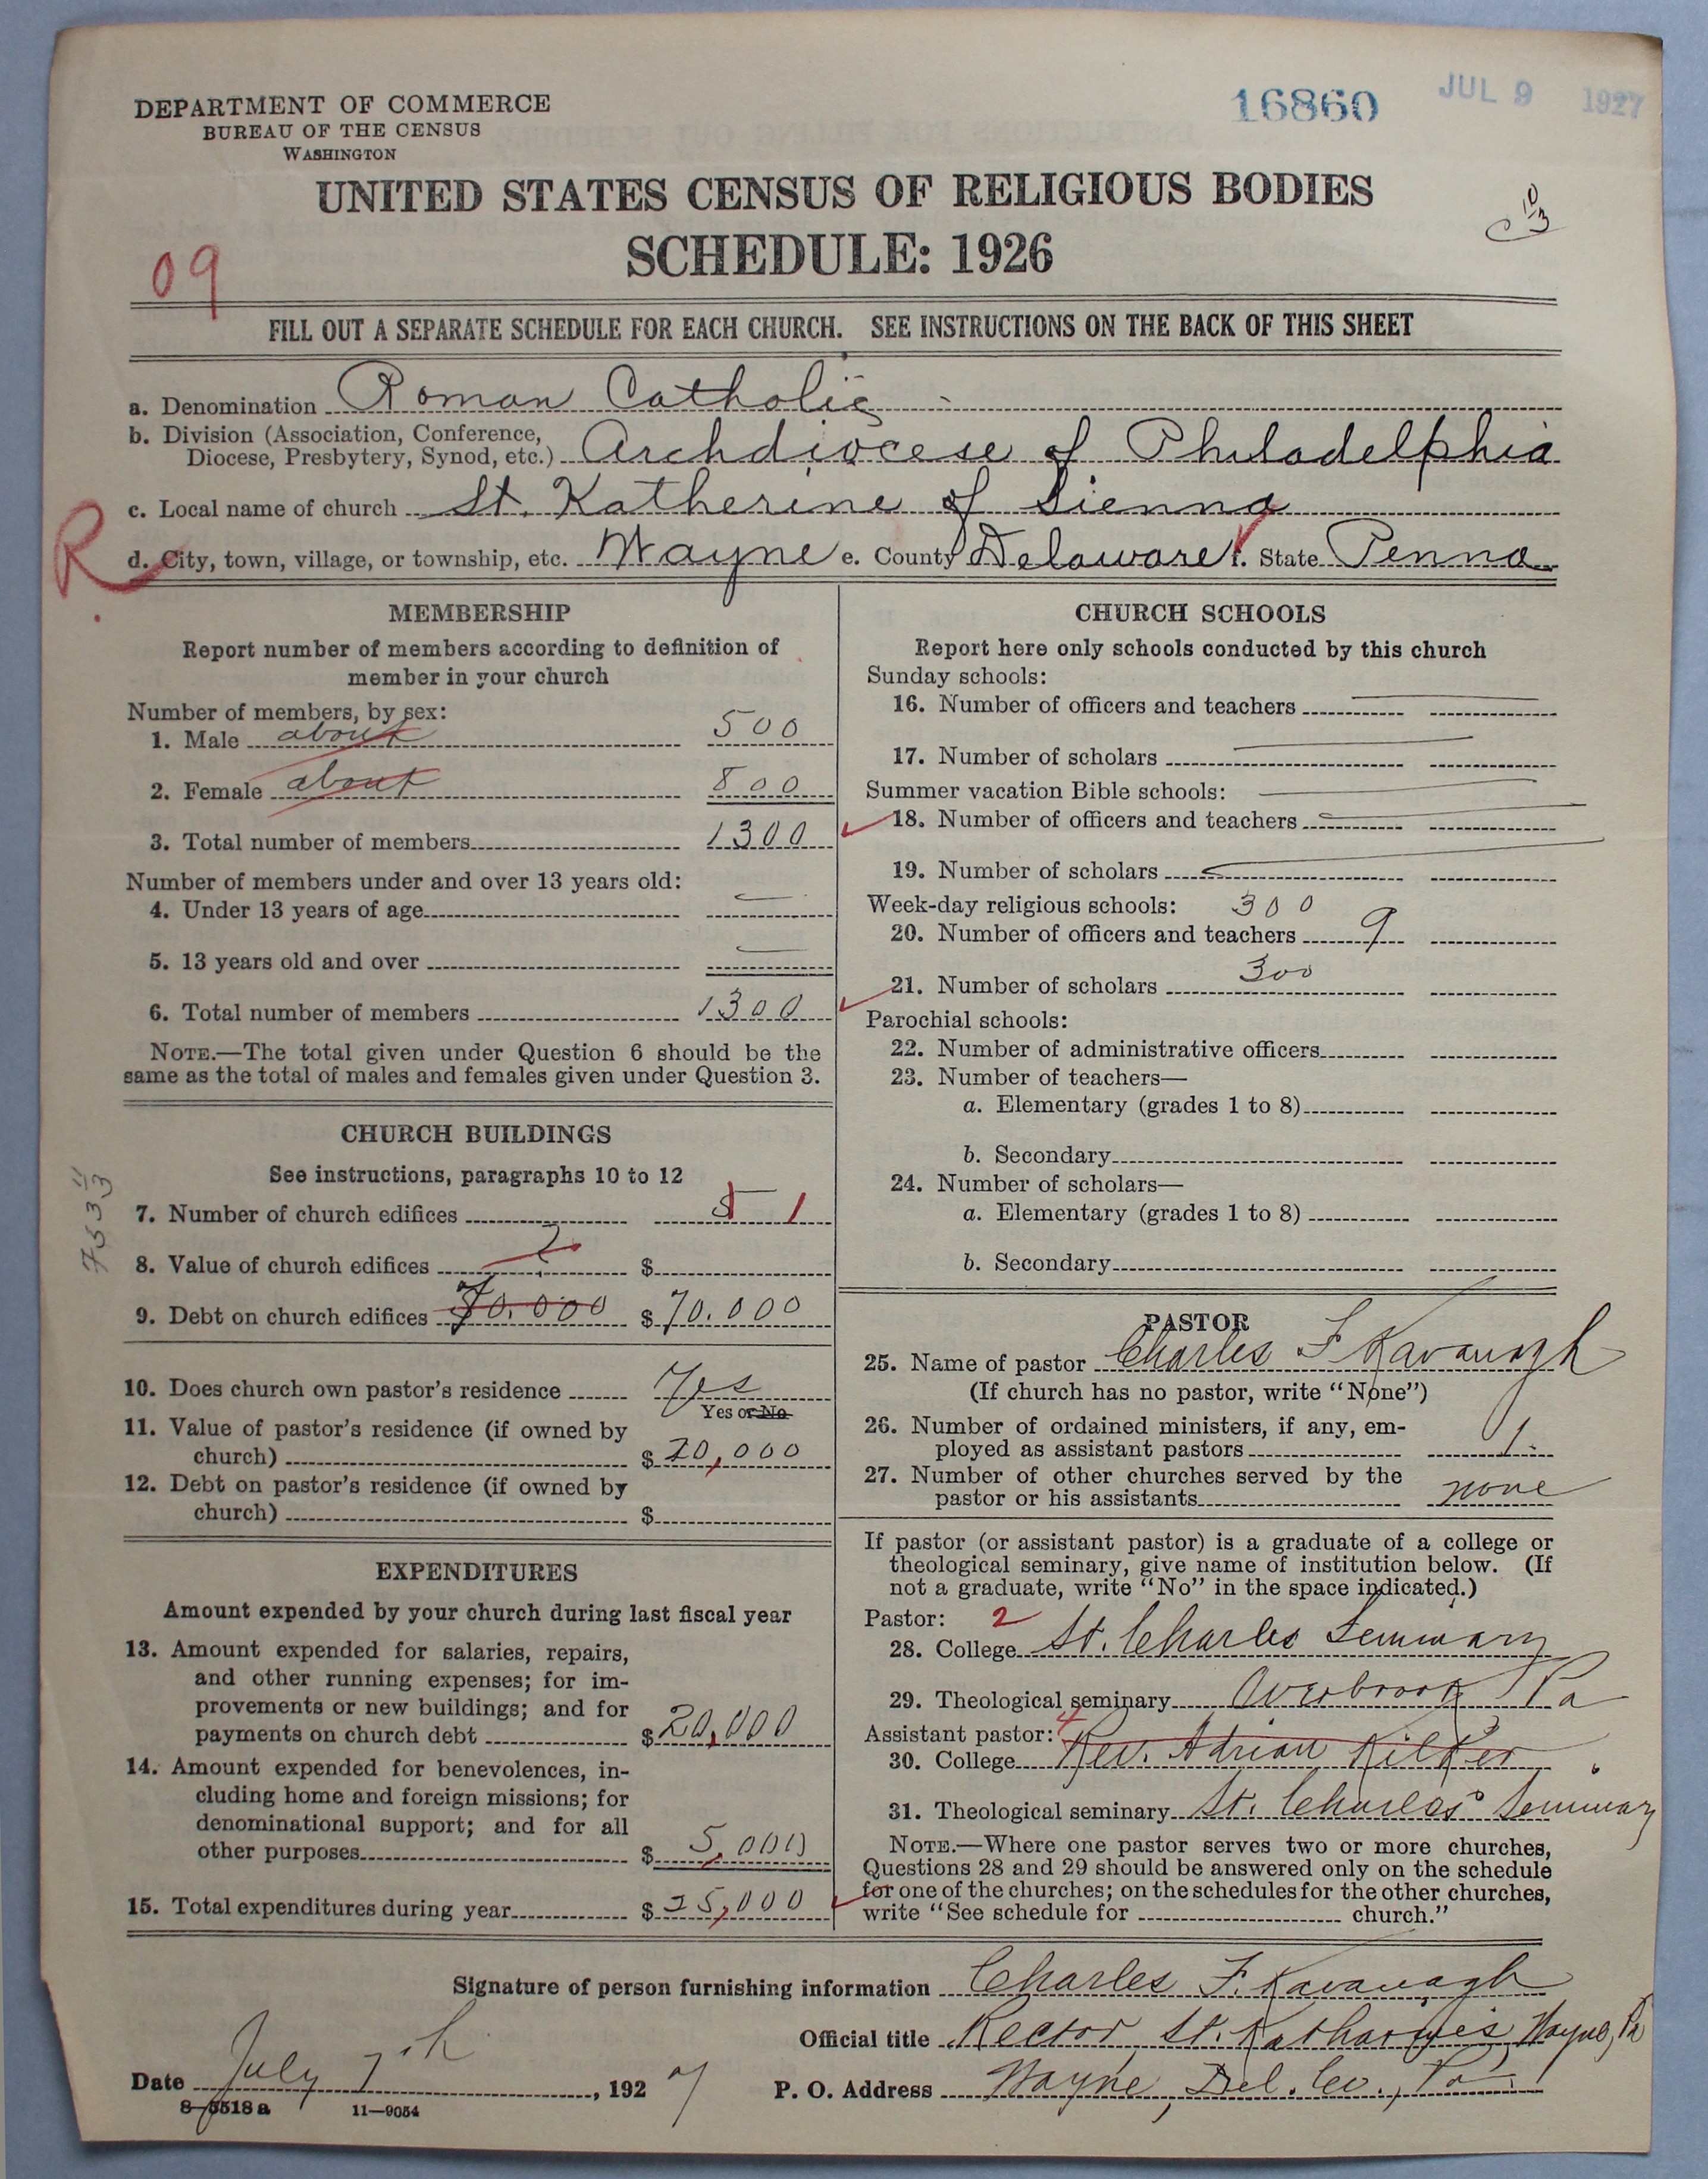 DEPARTMENT OF COMMERCE
BUREAU OF THE CENSUS
WASHINGTON
16860
JUL 9 1927
UNITED STATES CENSUS OF RELIGIOUS BODIES
SCHEDULE: 1926
09
FILL OUT A SEPARATE SCHEDULE FOR EACH CHURCH. SEE INSTRUCTIONS ON THE BACK OF THIS SHEET
a. Denomination Roman Catholic
b. Division (Association, Conference,
Diocese, Presbytery, Synod, etc.) Archdiocese of Philadelphia
c. Local name of church St. Katherine of Sienna
R
d. City, town, village, or township, etc. Wayne e. County Delaware f. State Penna.
MEMBERSHIP
Report number of members according to definition of
member in your church
Number of members, by sex:
1. Male about 500
2. Female about 800
3. Total number of members 1300
Number of members under and over 13 years old:
4. Under 13 years of age —
5. 13 years old and over —
6. Total number of members 1300
NOTE.—The total given under Question 6 should be the
same as the total of males and females given under Question 3.
CHURCH BUILDINGS
See instructions, paragraphs 10 to 12
7. Number of church edifices 1
8. Value of church edifices ? $
9. Debt on church edifices 70.000 $ 70.000
10. Does church own pastor's residence Yes
Yes or No
11. Value of pastor's residence (if owned by
church) $ 20,000
12. Debt on pastor's residence (if owned by
church) $
EXPENDITURES
Amount expended by your church during last fiscal year
13. Amount expended for salaries, repairs,
and other running expenses; for im-
provements or new buildings; and for
payments on church debt $ 20,000
14. Amount expended for benevolences, in-
cluding home and foreign missions; for
denominational support; and for all
other purposes $ 5,000
15. Total expenditures during year $ 25,000
CHURCH SCHOOLS
Report here only schools conducted by this church
Sunday schools:
16. Number of officers and teachers
17. Number of scholars
Summer vacation Bible schools:
18. Number of officers and teachers
19. Number of scholars
Week-day religious schools: 300
20. Number of officers and teachers 9
21. Number of scholars 300
Parochial schools:
22. Number of administrative officers
23. Number of teachers—
a. Elementary (grades 1 to 8)
b. Secondary
24. Number of scholars—
a. Elementary (grades 1 to 8)
b. Secondary
PASTOR
25. Name of pastor Charles F Kavanagh
(If church has no pastor, write "None")
26. Number of ordained ministers, if any, em-
ployed as assistant pastors 1.
27. Number of other churches served by the
pastor or his assistants none
If pastor (or assistant pastor) is a graduate of a college or
theological seminary, give name of institution below. (If
not a graduate, write "No" in the space indicated.)
Pastor: 2
28. College St. Charles Seminary
29. Theological seminary Overbrook, Pa
Assistant pastor: 4
30. College Rev. Adrian Kilker
31. Theological seminary St. Charles Seminary
NOTE.—Where one pastor serves two or more churches,
Questions 28 and 29 should be answered only on the schedule
for one of the churches; on the schedules for the other churches,
write "See schedule for church."
Signature of person furnishing information Charles F. Kavanagh
Official title Rector, St. Katharine's, Wayne, Pa
Date July 7th, 1927
P. O. Address Wayne, Del. Co., Pa.
8-5518a 11-9054